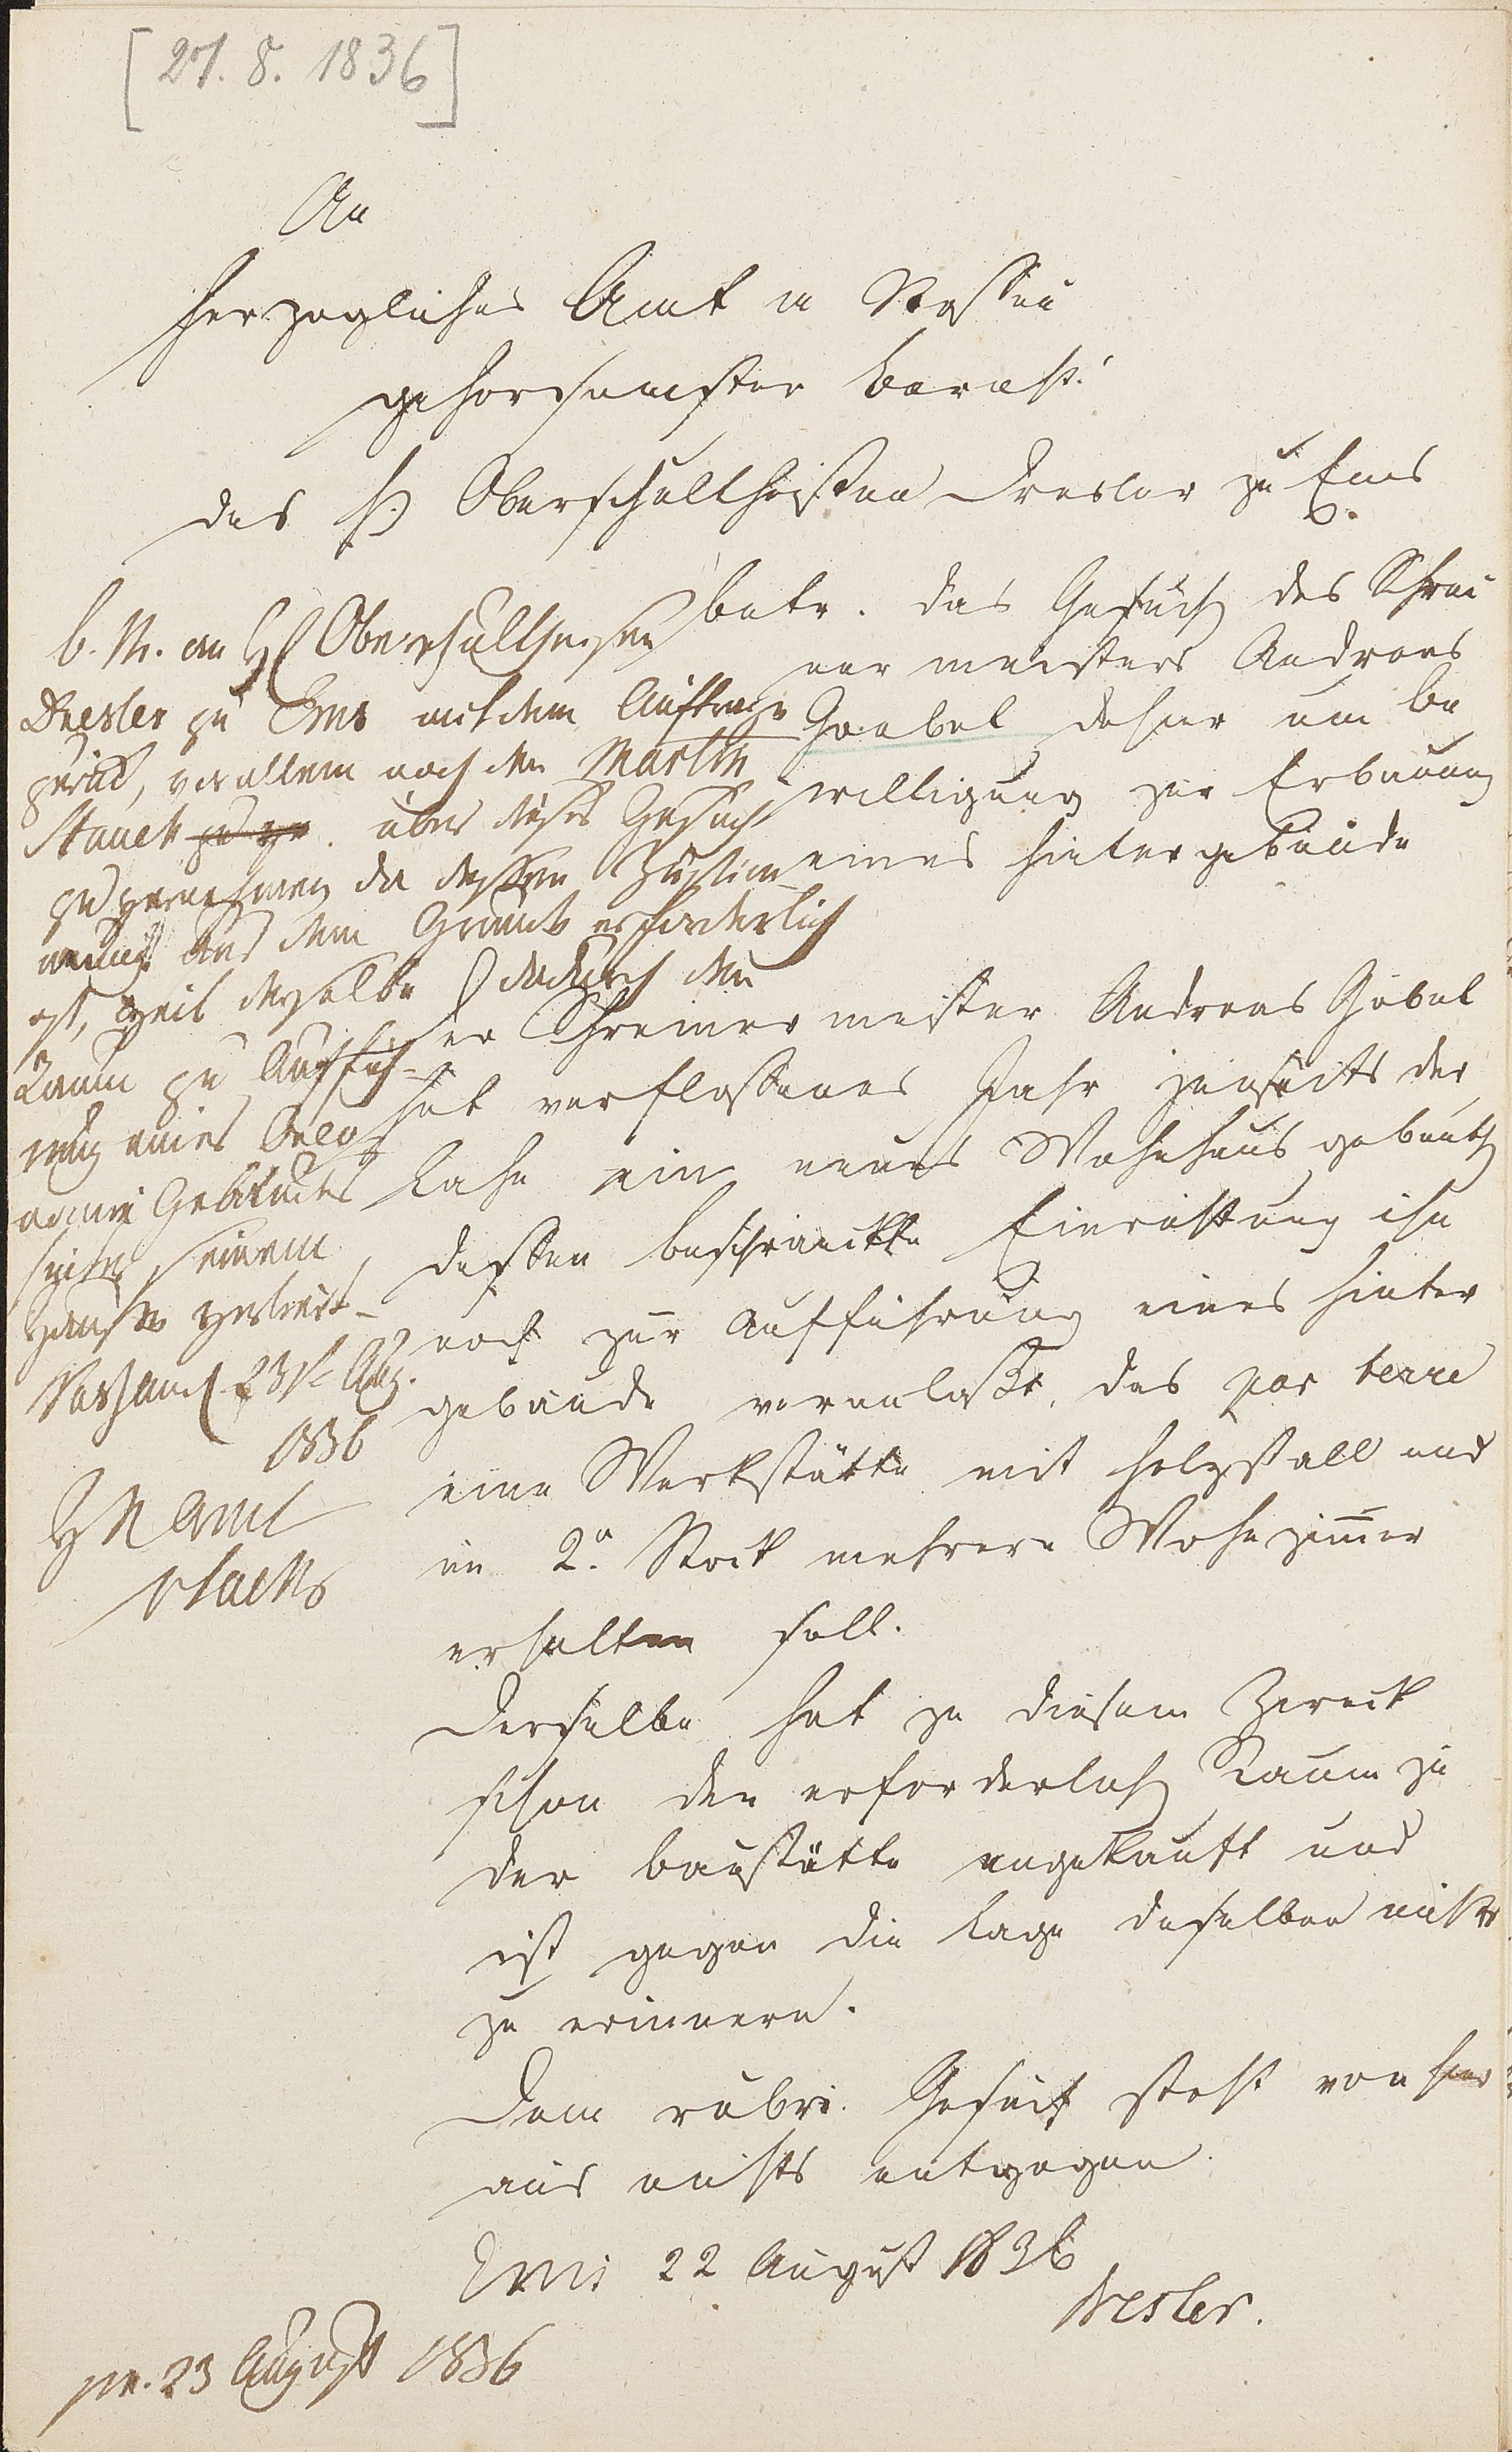 [27. 8. 1836]
An
Herzogliches Amt in Nassau
gehorsamster Bericht
des H. Oberschultheissen Dresler zu Ems
betr. das Gesuch des Schrei
ner meisters Andreas
Goebel dahier um Be
willigung zur Erbauung
eines Hintergebäude
b. M. an H Oberschultheisen
Dresler zu Ems mit dem Auftrage
zurück, vor allem noch den Martin
Stauch über dieses Gesuch
zu vernehmen da dessen Zustim
mung aus dem Grunde erforderlich
ist, weil derselbe dadurch den
Raum zu Auffüh-
rung eines
Gebäudes
hinter seinem
Hause verliert.
Nassau d 23 Aug.
1836
H N Amt
Der Schreiner meister Andreas Göbel
hat verflossenes Jahr jenseits der
Lahn ein neues Wohnhaus gebaut,
dessen beschränkte Einrichtung ihn
noch zur Aufführung eines Hinter
gebäude veranlaßt, das par terre
eine Werkstätte mit Holzstall und
im 2n. Stock mehrere Wohnzimmer
erhalten soll.
Derselbe hat zu diesem Zweck
schon den erforderlich Raum zu
der Baustätte angekauft und
ist gegen die Lage desselben nichts
zu erinnern.
Dem rubri. Gesuch steht von hier
aus nichts entgegen
Ems 22 August 1836
Dresler.
pr. 23 August 1836